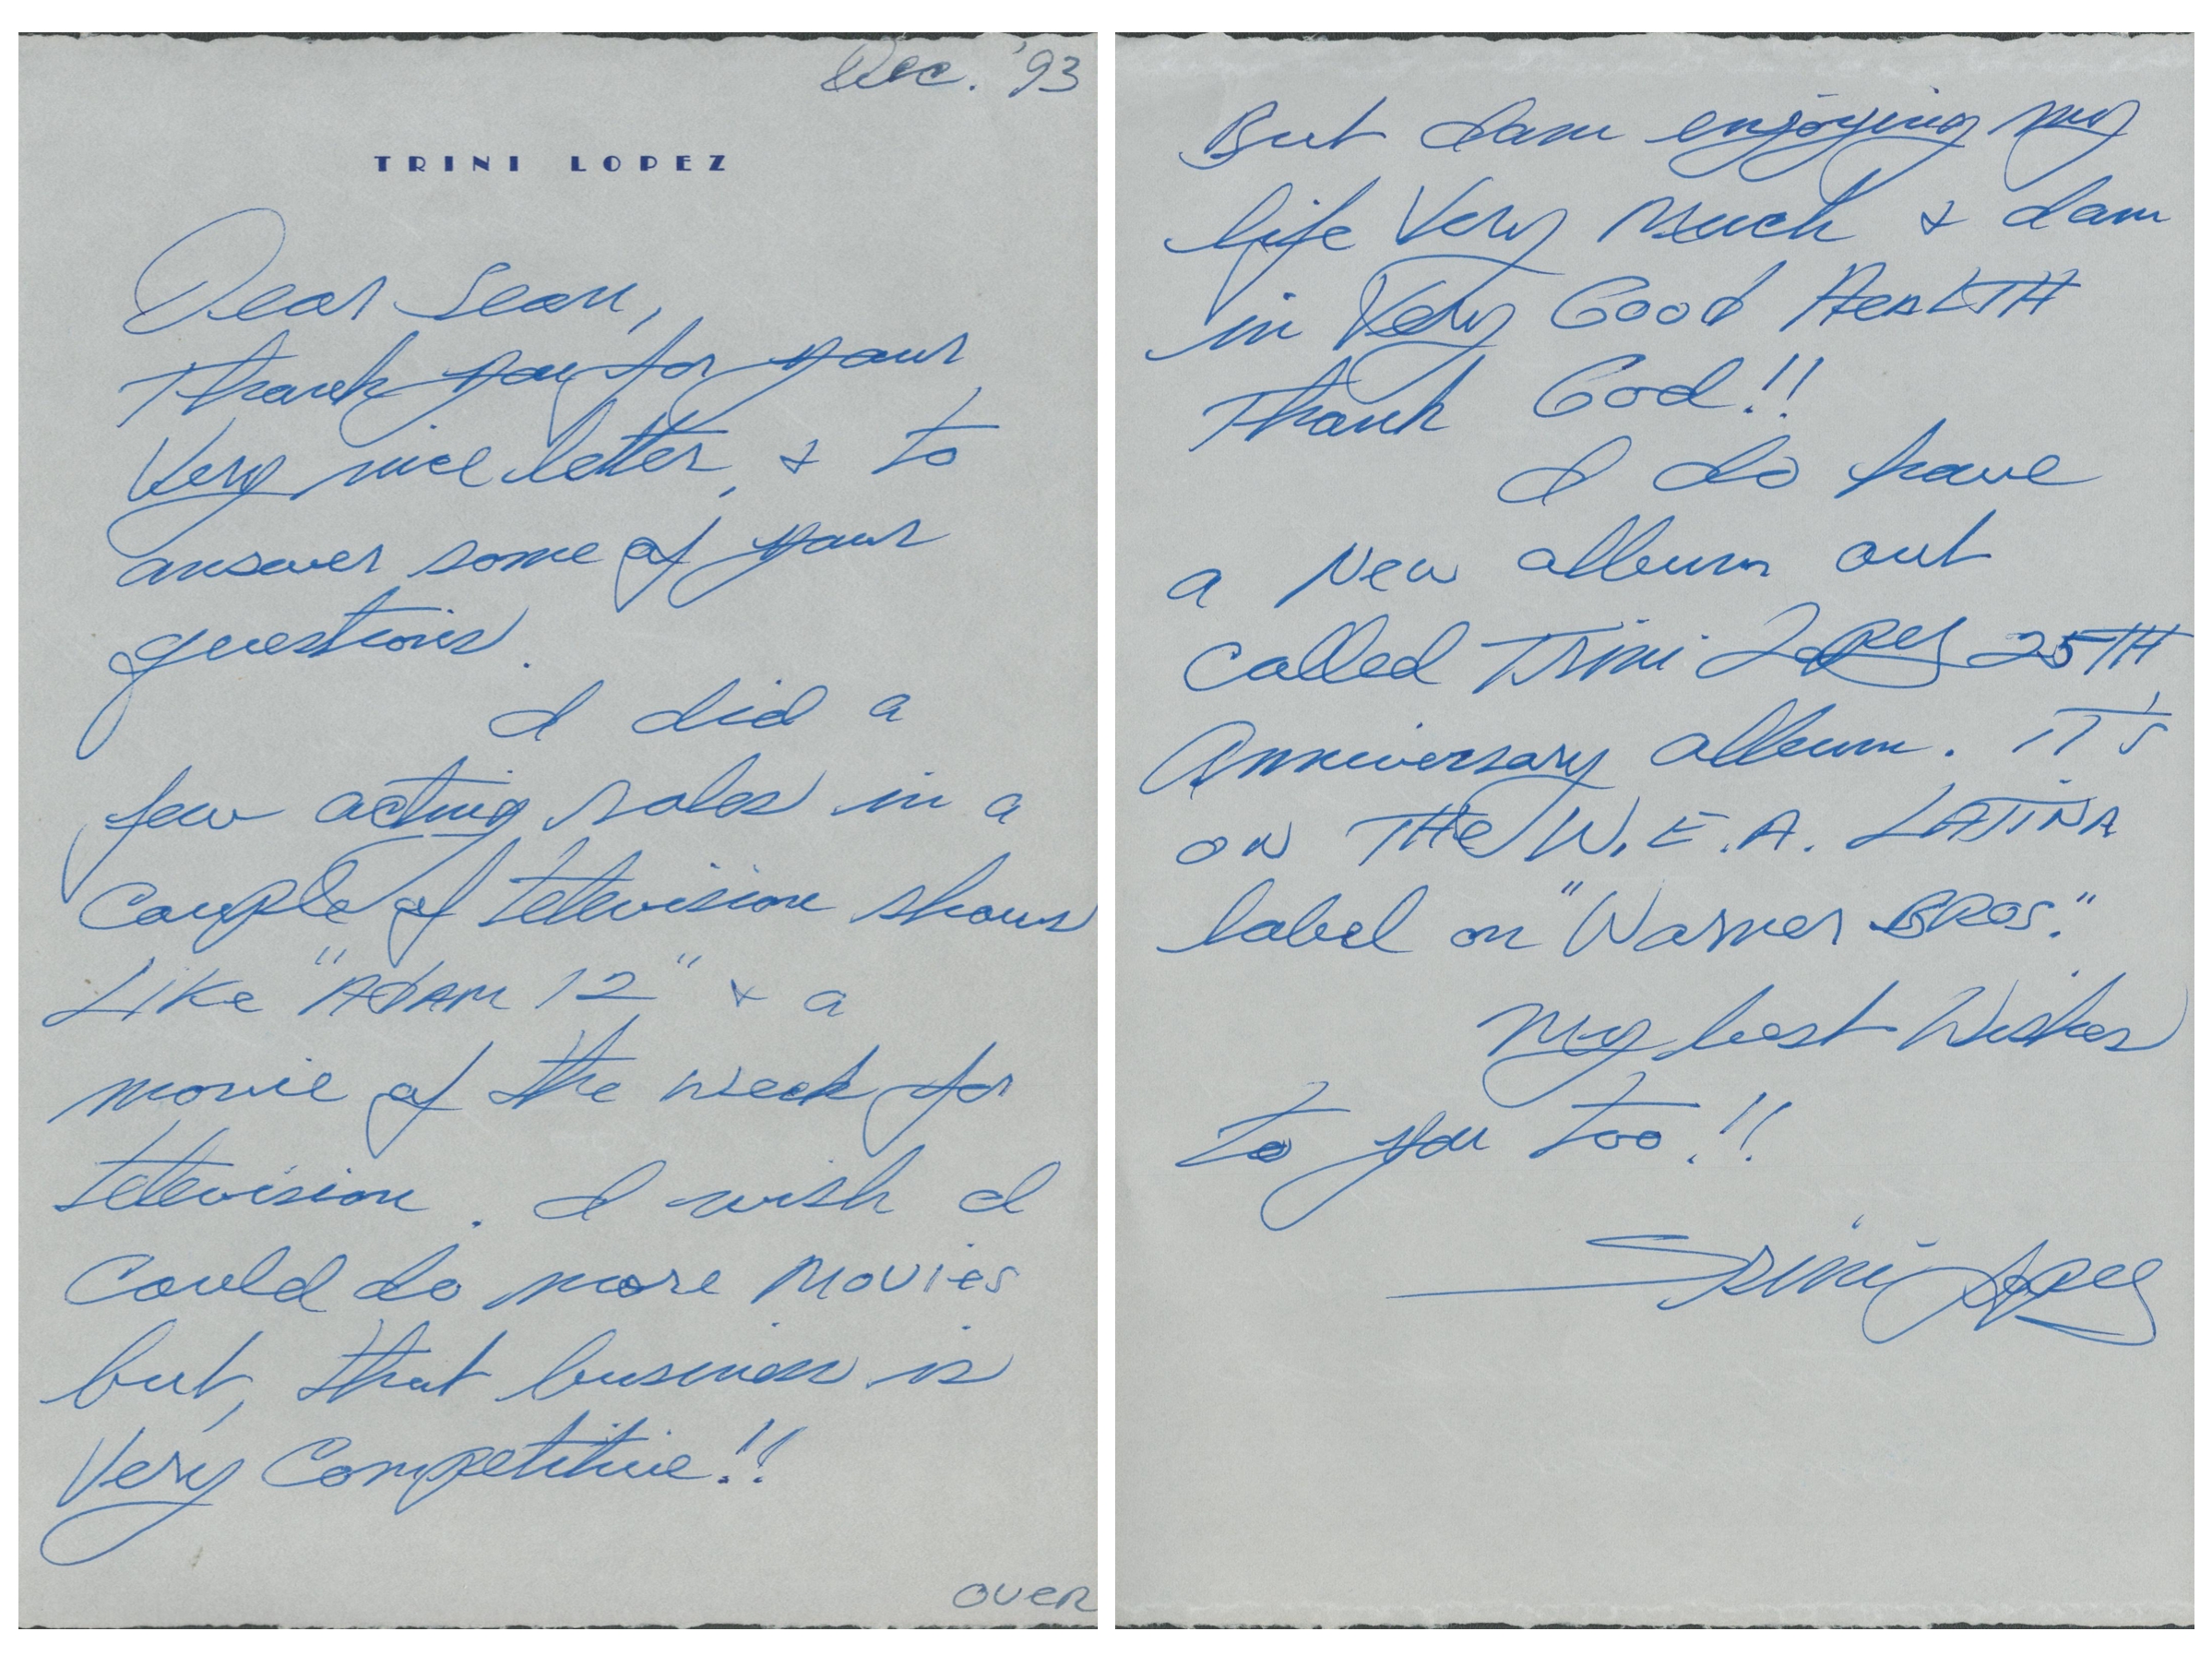 Dec. '93
TRINI LOPEZ
Dear Sean,
Thank you for your
Very nice letter, & to
answer some of your
questions.
I did a
few acting roles in a
Couple of television shows
Like "ADAM 12" & a
movie of the week for
television. I wish I
Could do more movies
but, that business is
Very Competitive!!
OVER
But I am enjoying my
life Very Much & I am
in Very Good HeaLTH
Thank God!!
I do have
a New album out
Called Trini Lopez 25TH
Anniversary album. IT's
ON THe W.E.A. LATINA
label on "Warner BROS."
My best Wishes
to you too!!
Trini Lopez